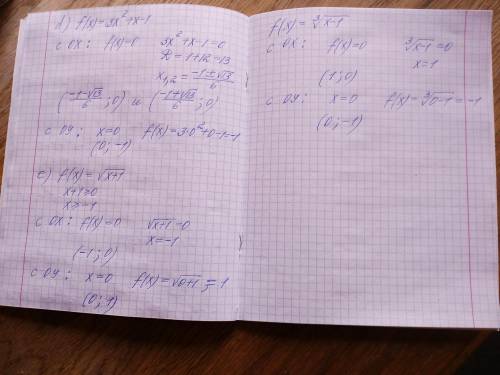 d) f(x)=3x²+x-1
с OX: f(x)=0 3x²+x-1=0
D=1+12=13
x₁,₂ = (-1±√13)/6
((-1-√13)/6; 0) и ((-1+√13)/6; 0)
с OY: x=0 f(x)=3·0²+0-1=-1
(0; -1)
e) f(x)=√(x+1)
x+1≥0
x≥-1
с OX: f(x)=0 √(x+1)=0
x=-1
(-1; 0)
с OY: x=0 f(x)=√(0+1)=1
(0; 1)
f(x)=∛(x-1)
с OX: f(x)=0 ∛(x-1)=0
(1; 0) x=1
с OY: x=0 f(x)=∛(0-1)=-1
(0; -1)